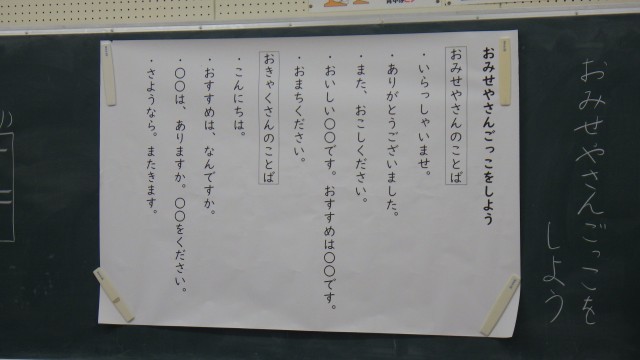 おみせやさんごっこを
しよう
おみせやさんごっこをしよう
おみせやさんのことば
・いらっしゃいませ。
・ありがとうございました。
・また、おこしください。
・おいしい〇〇です。おすすめは〇〇です。
・おまちください。
おきゃくさんのことば
・こんにちは。
・おすすめは、なんですか。
・〇〇は、ありますか。〇〇をください。
・さようなら。またきます。